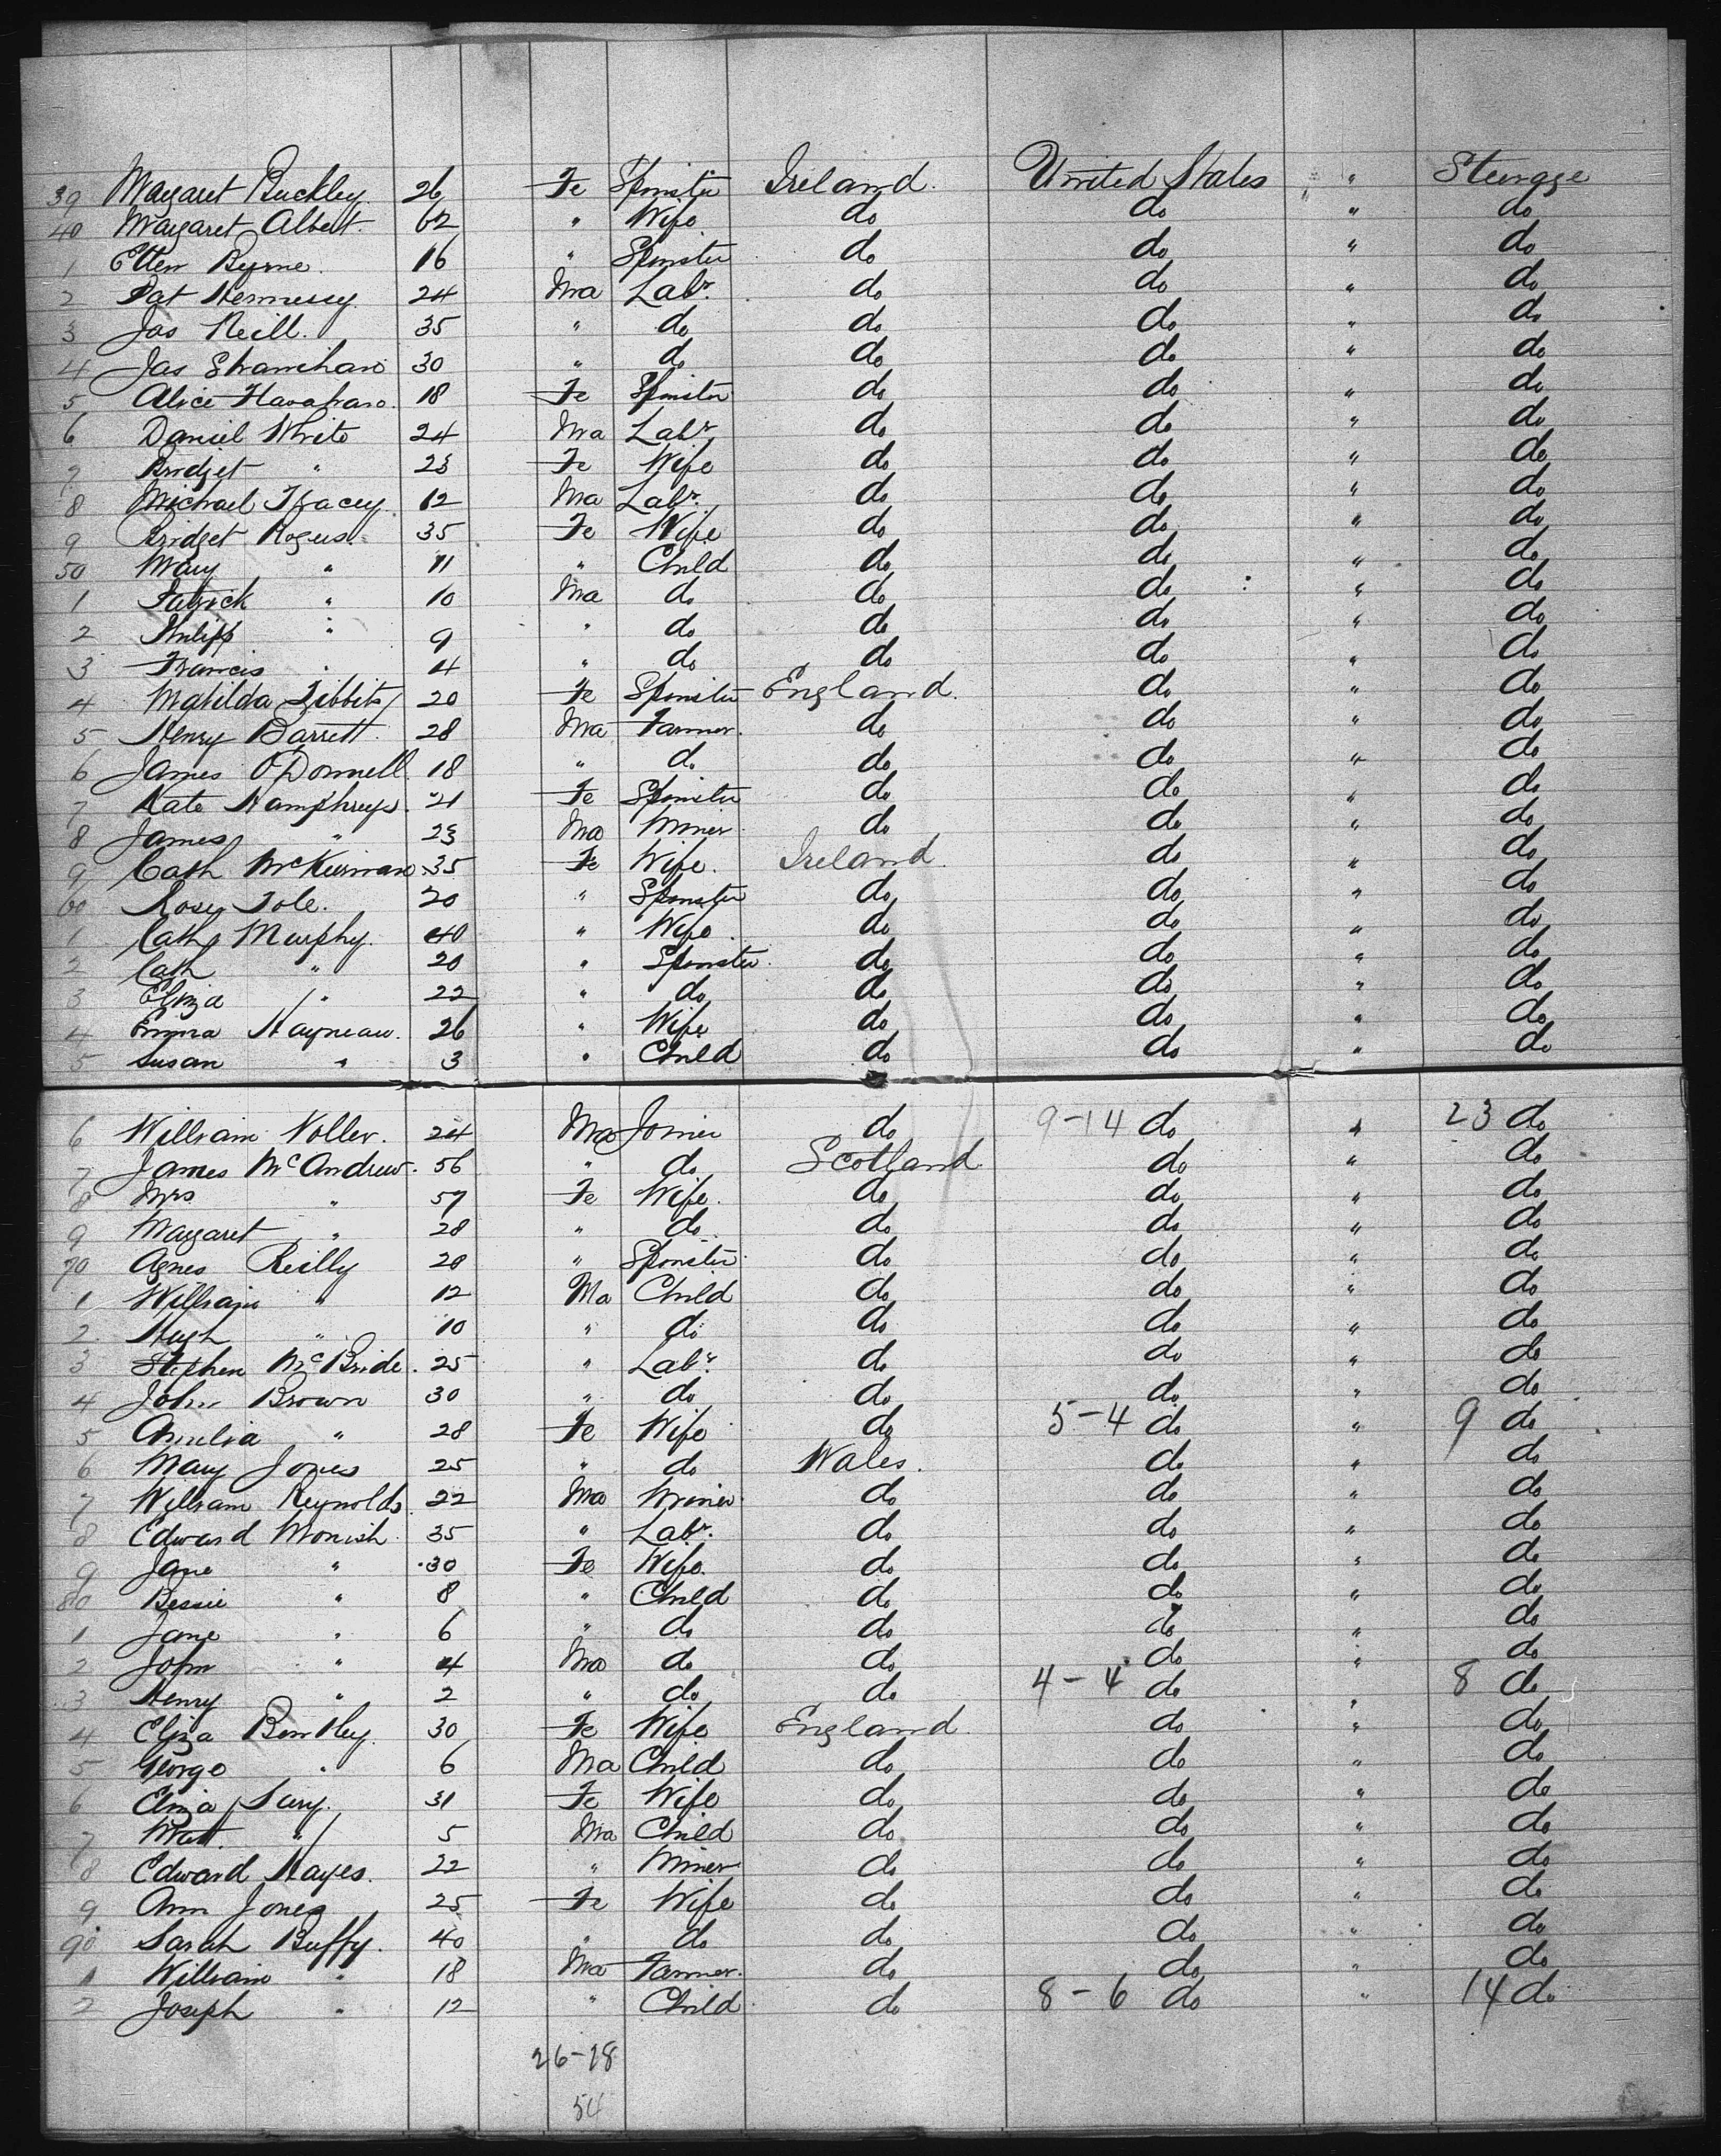 39 Margaret Buckley. 26 Fe Spinster Ireland. United States " Steerage
40 Margaret Albert. 62 " Wife do do " do
1 Ellen Byrne. 16 " Spinster do do " do
2 Pat Hennessy. 24 Ma Labr. do do " do
3 Jas Neill. 35 " do do do " do
4 Jas 30 " do do do " do
5 Alice 18 Fe Spinster do do " do
6 Daniel White 24 Ma Labr do do " do
7 Bridget " 23 Fe Wife do do " do
8 Michael Tracey. 12 Ma Labr. do do " do
9 Bridget Rogers. 35 Fe Wife do do " do
50 Mary " 11 " Child do do " do
1 Patrick " 10 Ma do do do " do
2 Philipp " 9 " do do do " do
3 Francis " 4 " do do do " do
4 Matilda Tibbits 20 Fe Spinster England. do " do
5 Henry Barrett. 28 Ma Farmer. do do " do
6 James O'Donnell. 18 " do do do " do
7 Kate Humphreys. 21 Fe Spinster do do " do
8 James " 23 Ma Miner do do " do
9 Cath McKiernan. 35 Fe Wife. Ireland. do " do
60 Rosey Tole. 20 " Spinster do do " do
1 Cath Murphy. 40 " Wife. do do " do
2 Cath " 20 " Spinster. do do " do
3 Eliza " 22 " do do do " do
4 Emma 26 " Wife do do " do
5 Susan " 3 " Child do do " do
6 William 24 Ma Joiner do 9-14 do " 23 do
7 James McAndrew. 56 " do Scotland. do " do
8 Mrs " 57 Fe Wife. do do " do
9 Margaret " 28 " do do do " do
70 Agnes Reilly 28 " Spinster do do " do
1 William " 12 Ma Child do do " do
2 Hugh " 10 " do do do " do
3 Stephen McBride. 25 " Labr. do do " do
4 John Brown 30 " do do do " do
5 Amelia " 28 Fe Wife do 5-4 do " 9 do
6 Mary Jones 25 " do Wales. do " do
7 William Reynolds. 22 Ma Miner do do " do
8 Edward Monish. 35 " Labr. do do " do
9 Jane " 30 Fe Wife. do do " do
80 Bessie " 8 " Child do do " do
1 Jane " 6 " do do do " do
2 John " 4 Ma do do do " do
3 Henry " 2 " do do 4-4 do " 8 do
4 Eliza Bentley. 30 Fe Wife England. do " do
5 George " 6 Ma Child do do " do
6 Eliza 31 Fe Wife do do " do
7 Matt. " 5 Ma Child do do " do
8 Edward Hayes. 22 " Miner do do " do
9 Ann Jones 25 Fe Wife do do " do
90 Sarah Buffy. 40 " do do do " do
1 William " 18 Ma Farmer. do do " do
2 Joseph " 12 " Child do 8-6 do " 14 do
26-28
54